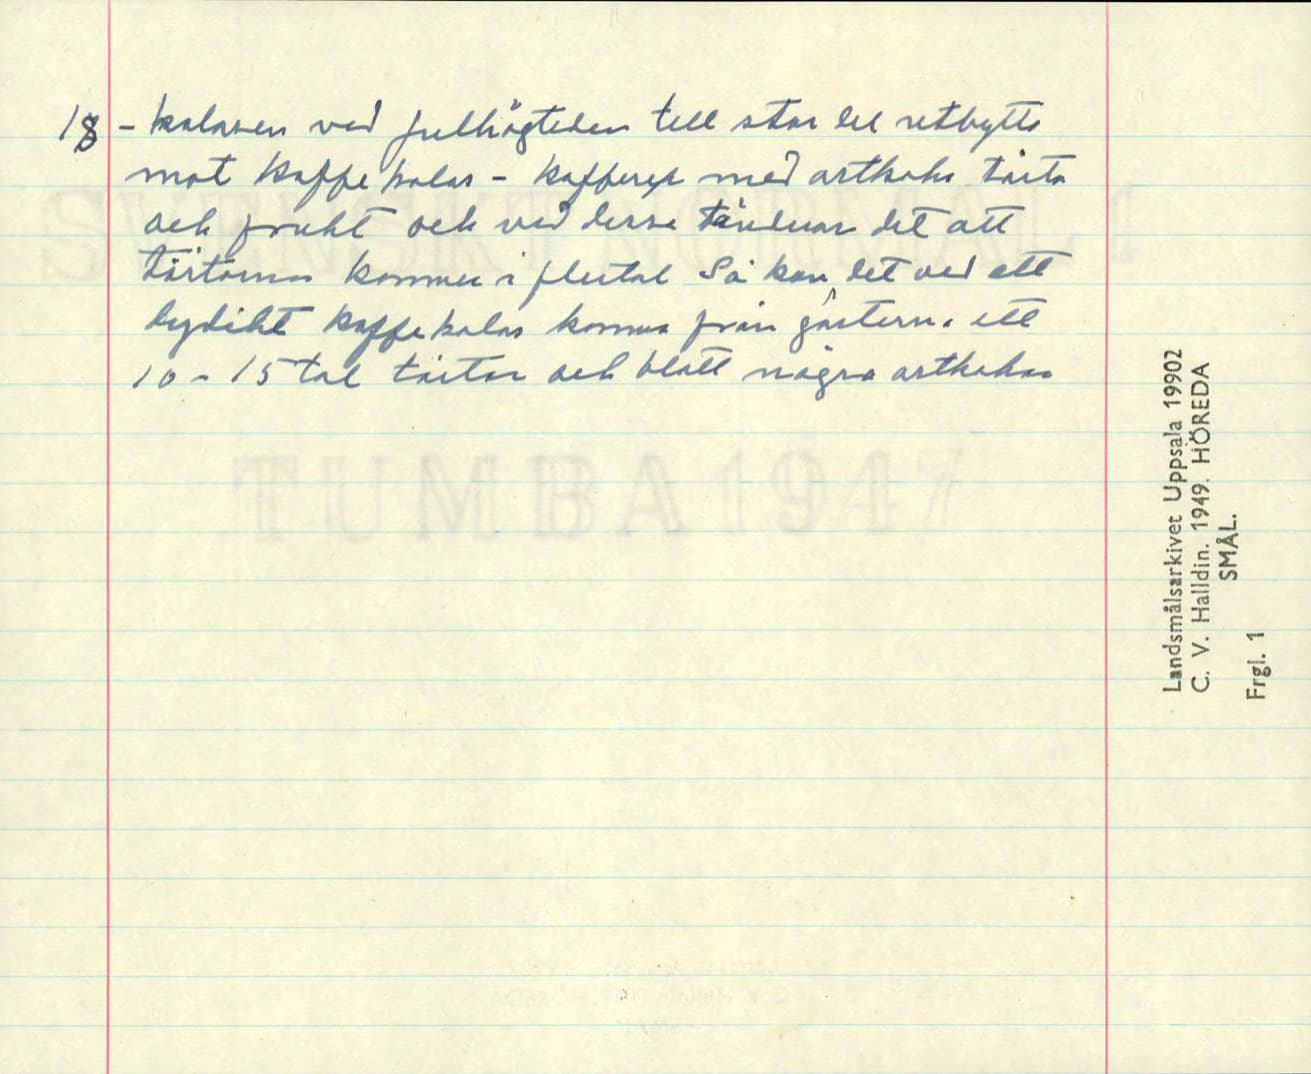 18 - kalasen ved julhögtiden till stor del utbytts
mot kaffekalas - kafferep med ostkaka tårta
och frukt och ved dessa händer det att
tårtorna kommer i flertal Så kan det ved ett
dydikt kaffekalas komma från gästerna ett
10 - 15 tal tårtor och blott några ostkakor
SVENSKT NORMAL 1
TUMBA 1947
Landsmålsarkivet Uppsala 19902
C. V. Halldin. 1949. HÖREDA
SMÅL.
Frgl. 1